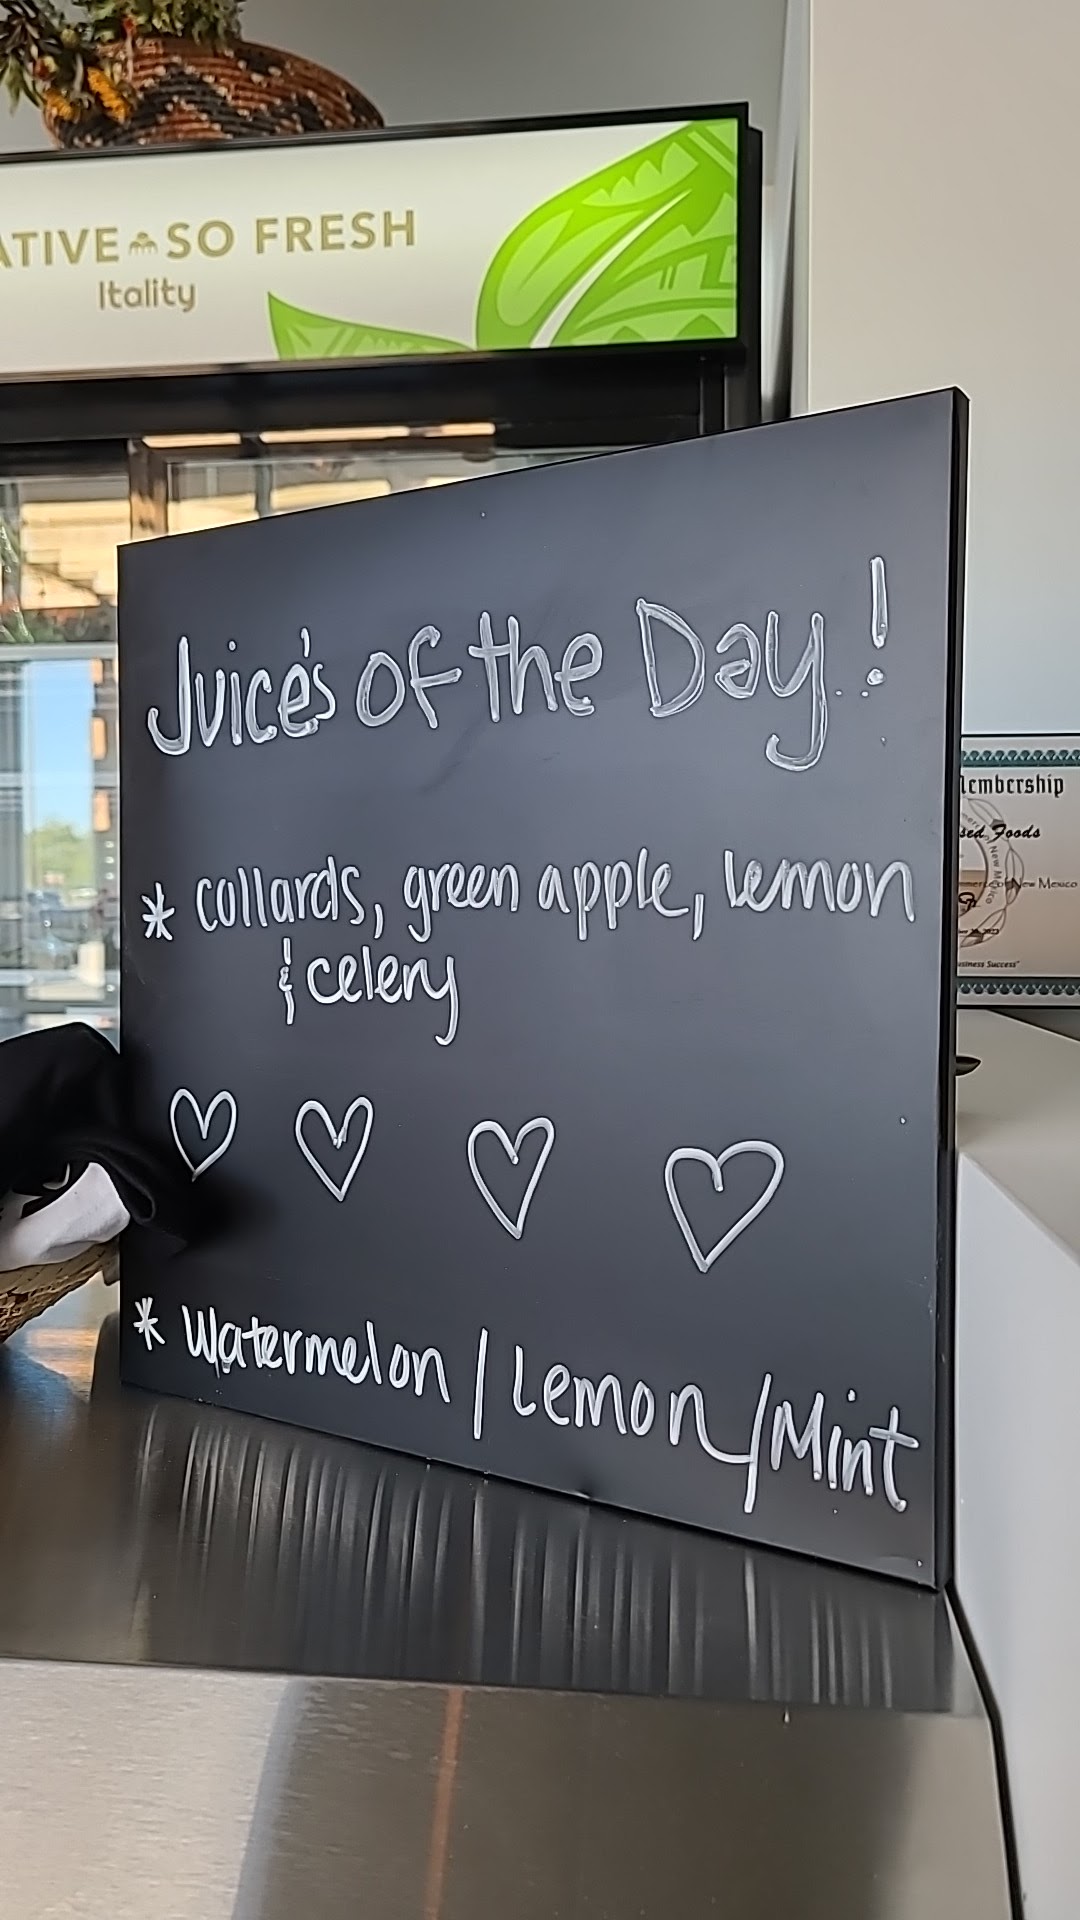 SO FRESH
Itality
Juice's of the Day!
* collards, green apple, lemon
& celery
* Watermelon / Lemon / Mint
Membership
Foods
New Mexico